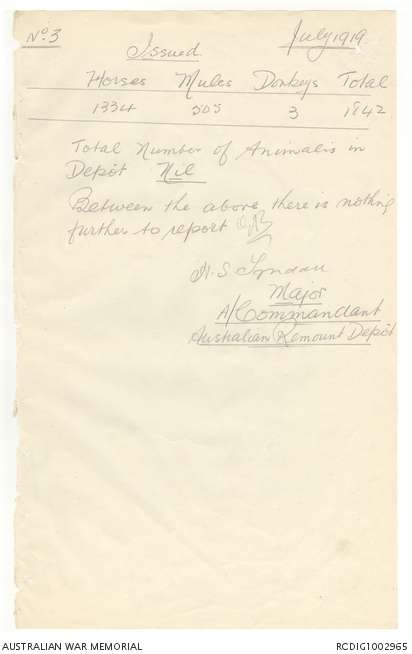 No. 3
July 1919
Issued
Horses Mules Donkeys Total
1334 505 3 1842
Total Number of Animals in
Depôt Nil
Between the above, there is nothing
further to report
Major
A/Commandant
Australian Remount Depôt
AUSTRALIAN WAR MEMORIAL
RCDIG1002965